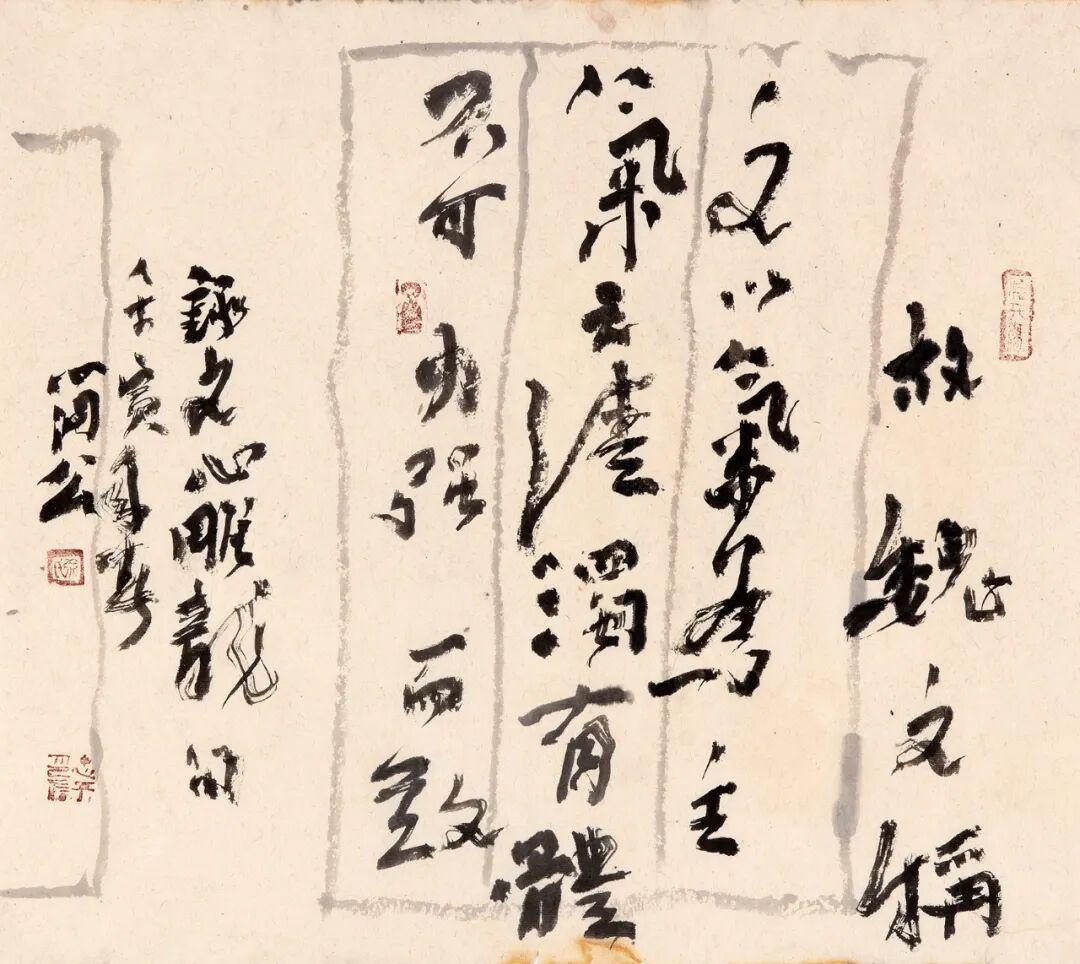 故魏文稱
文以氣爲主
氣之清濁有體
不可力強而致
錄文心雕龍句
壬寅
公